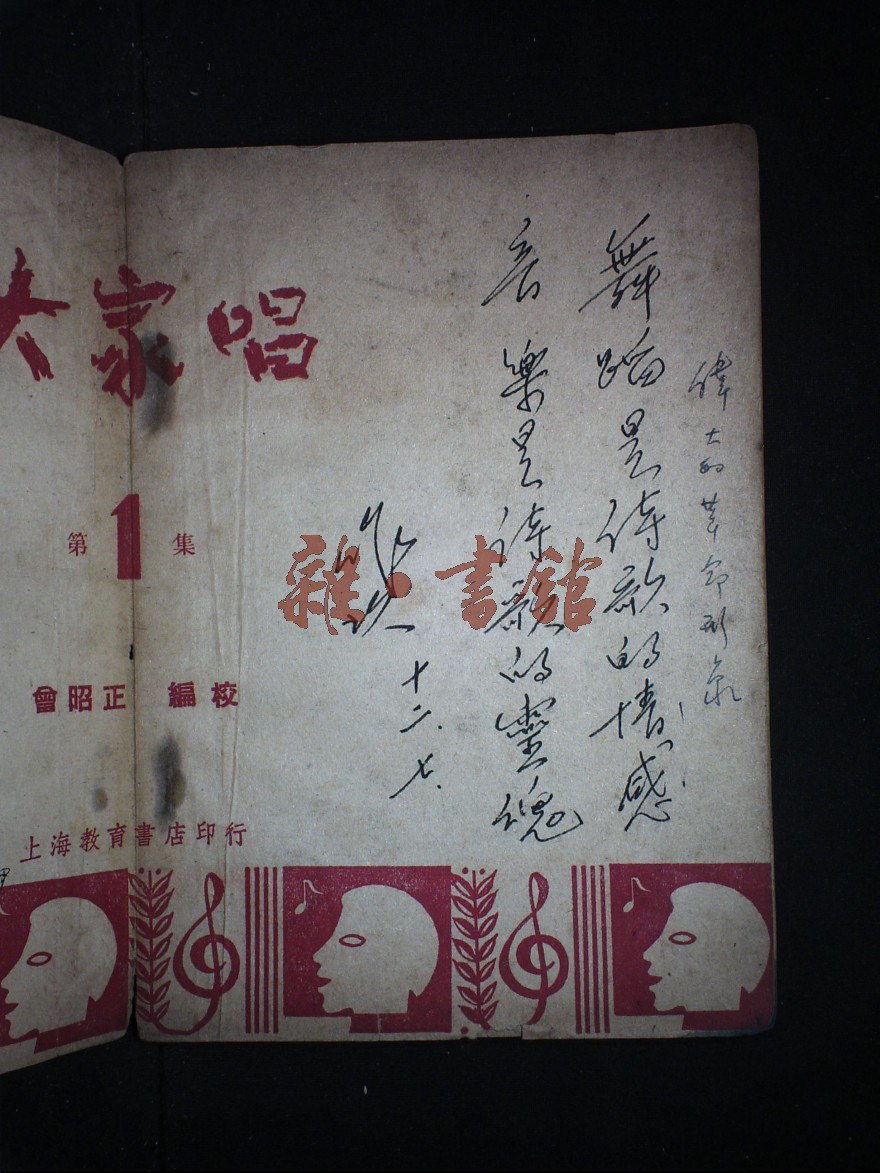 偉大的革命形象
舞蹈是诗歌的情感
音樂是诗歌的靈魂
十二.七.
大家唱
第1集
曾昭正 編校
上海教育書店印行
雜·書館